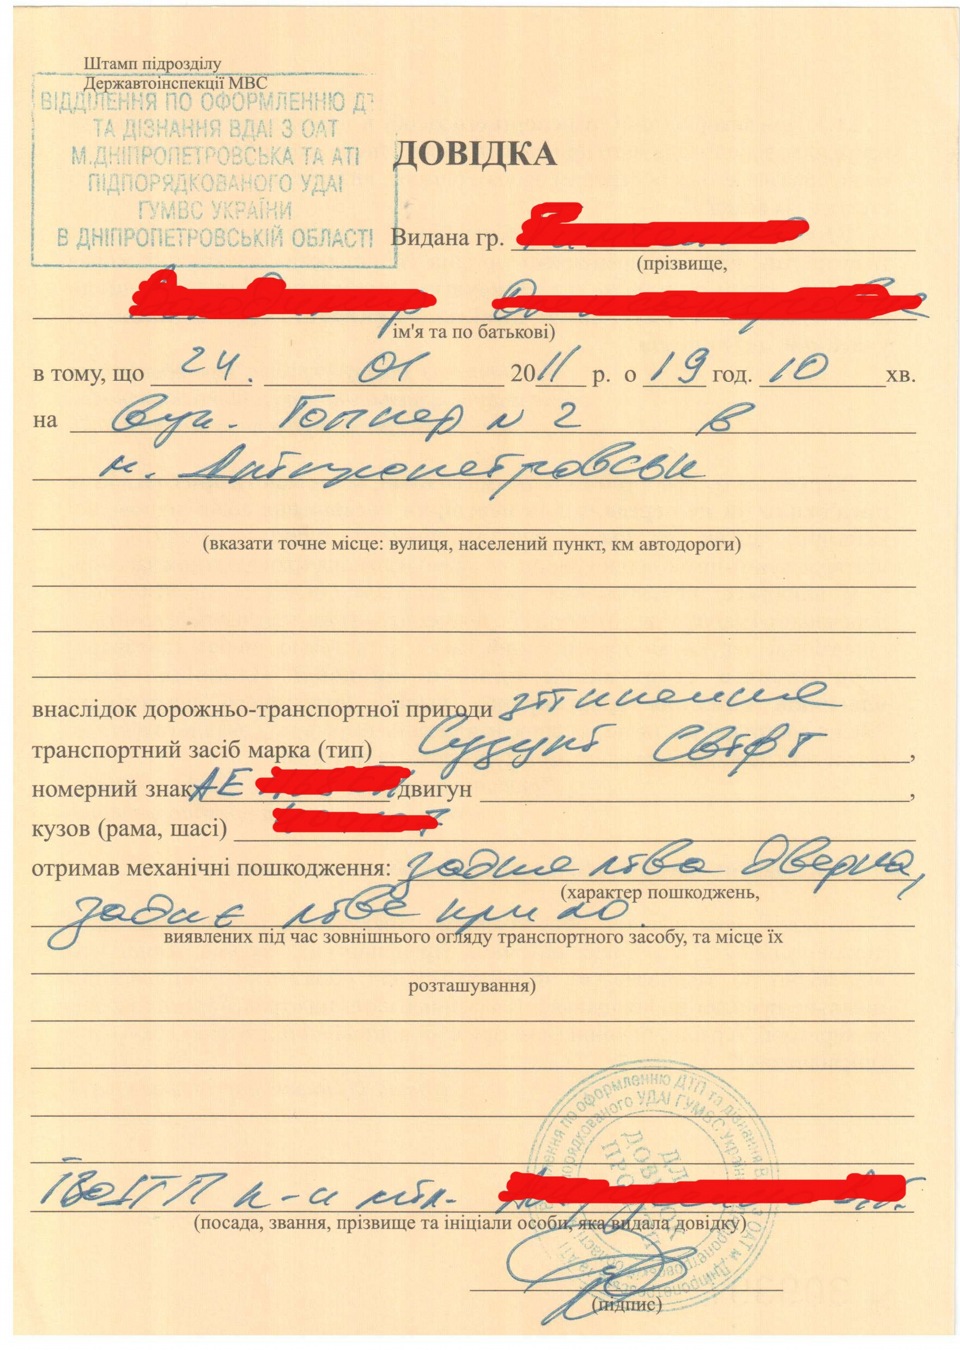 Штамп підрозділу
Державтоінспекції МВС
ВІДДІЛЕННЯ ПО ОФОРМЛЕННЮ ДТ
ТА ДІЗНАННЯ ВДАІ З ОАТ
М.ДНІПРОПЕТРОВСЬКА ТА АТІ
ПІДПОРЯДКОВАНОГО УДАІ
ГУМВС УКРАЇНИ
В ДНІПРОПЕТРОВСЬКІЙ ОБЛАСТІ
ДОВІДКА
Видана гр.
(прізвище,
ім'я та по батькові)
в тому, що 24. 01 2011 р. о 19 год. 10 хв.
на вул. Гопнер № 2 в
м. Дніпропетровськ
(вказати точне місце: вулиця, населений пункт, км автодороги)
внаслідок дорожньо-транспортної пригоди зіткнення
транспортний засіб марка (тип) Сузукі Свіфт,
номерний знак АЕ двигун ,
кузов (рама, шасі)
отримав механічні пошкодження: задня ліва дверка,
(характер пошкоджень,
заднє ліве крило.
виявлених під час зовнішнього огляду транспортного засобу, та місце їх
розташування)
(посада, звання, прізвище та ініціали особи, яка видала довідку)
(підпис)